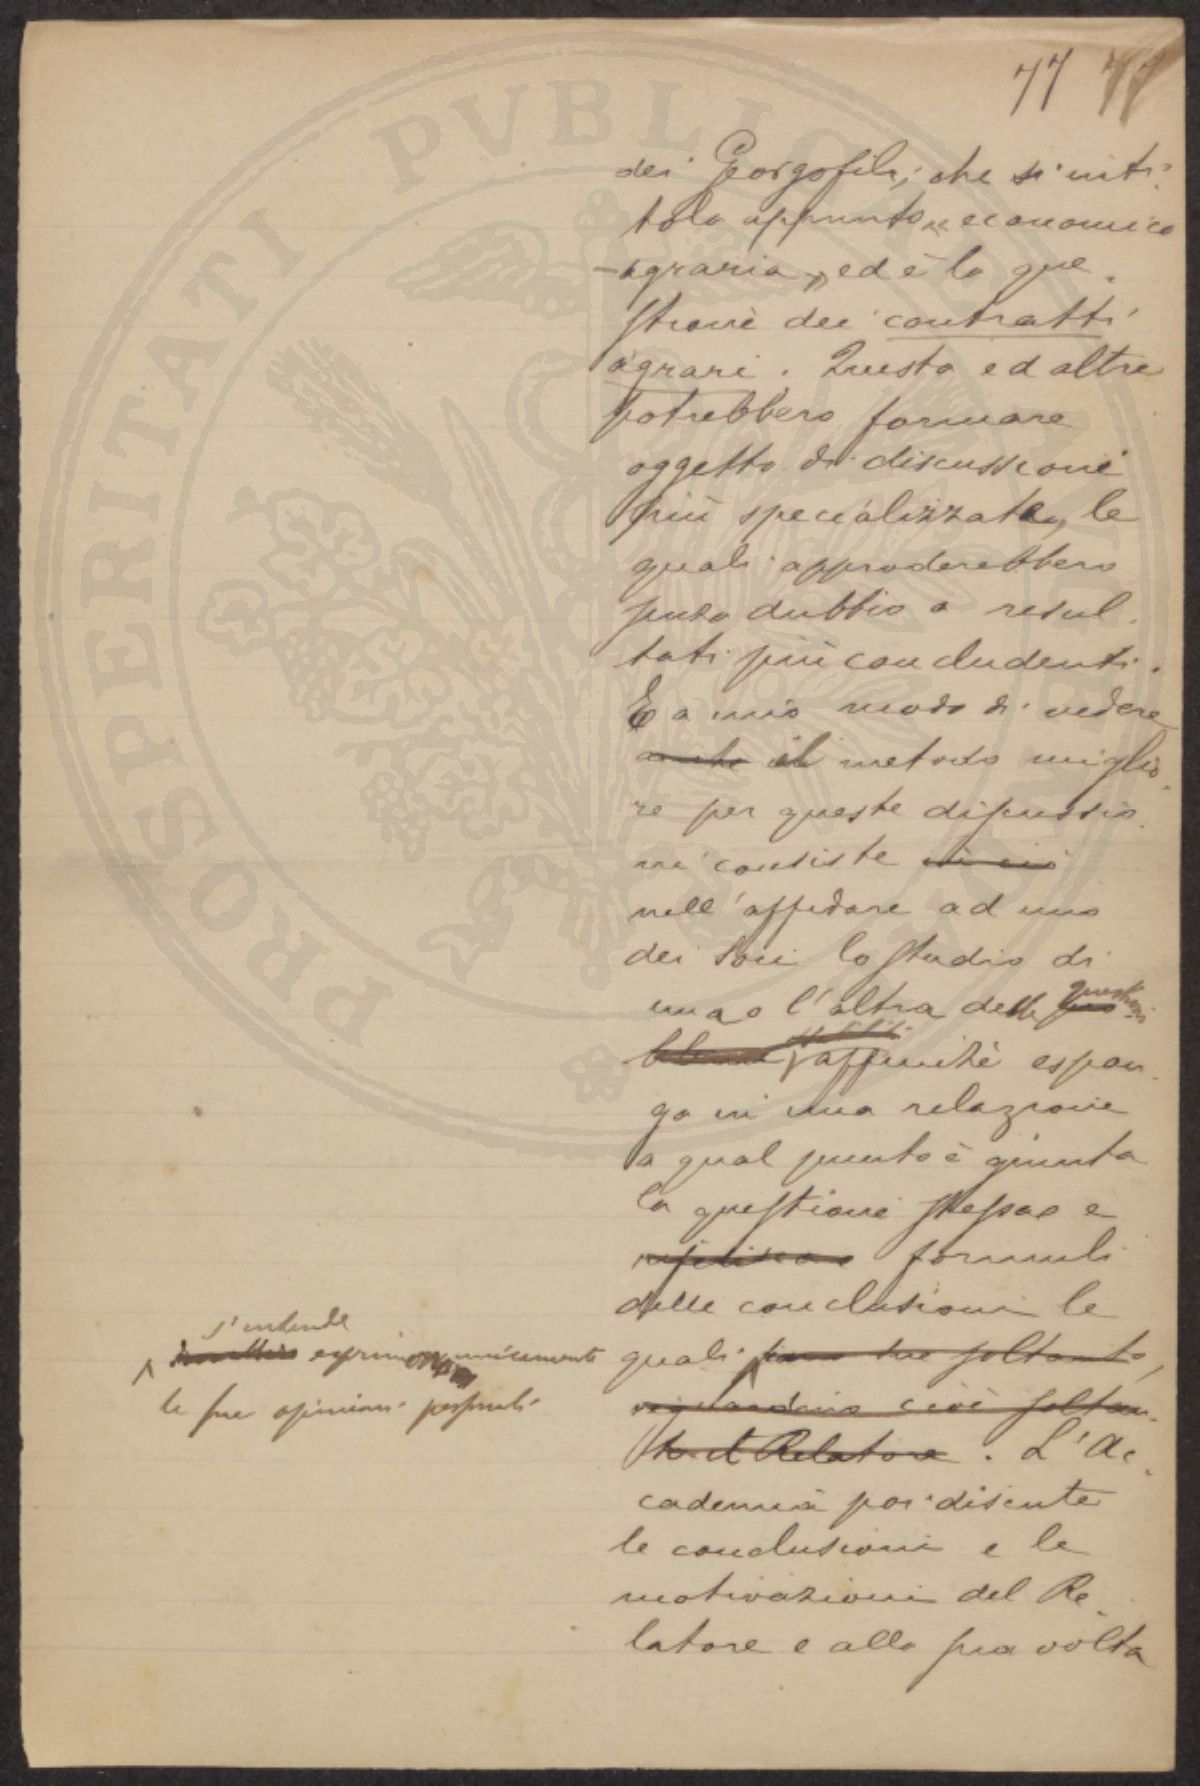 77 77
dei Georgofili, che s'inti-
tola appunto „economico
-agraria„ ed è la que-
stione dei contratti
agrari. Questa ed altre
potrebbero formare
oggetto di discussioni
più specializzate, le
quali approderebbero
senza dubbio a resul-
tati più concludenti.
E a mio modo di vedere
anche il metodo miglio-
re per queste discussio-
ni consiste in ciò
nell'affidare ad uno
dei Soci lo studio di
una o l'altra delle questioni
affinchè espon-
ga in una relazione
a qual punto è giunta
la questione stessa e
formuli
delle conclusioni le
quali sono sue soltanto,
riguardino cioè soltan-
to il Relatore. L'Ac-
cademia poi discute
le conclusioni e le
motivazioni del Re-
latore e alla sua volta
s'intende
esprimono unicamente
le sue opinioni personali
PROSPERITATI PVBLICAE